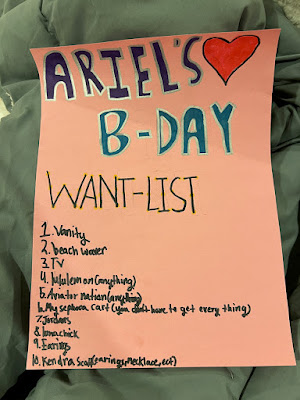 ARIEL'S
B-DAY
WANT-LIST
1. Vanity
2. beach waver
3. TV
4. lululemon (anything)
5. Aviator nation (anything)
6. My sephora cart (you don't have to get every thing)
7. Jordans
8. lonachick
9. Earings
10. Kendra Scott (earings, necklace, ect)